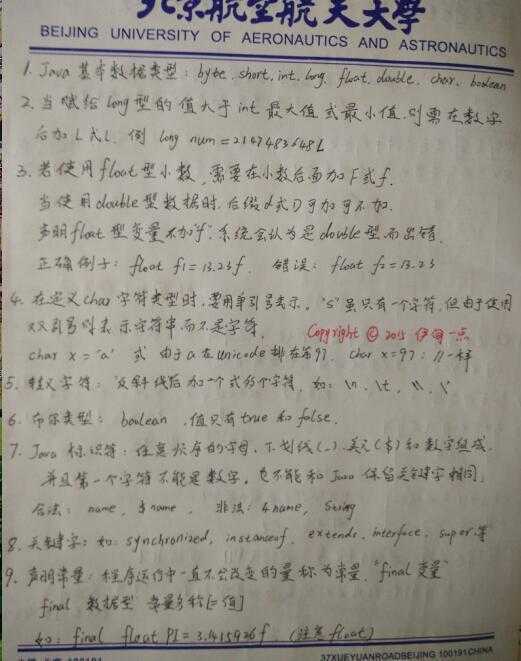 北京航空航天大學
BEIJING UNIVERSITY OF AERONAUTICS AND ASTRONAUTICS
1. Java 基本数据类型: byte. short. int. long. float. double. char. boolean
2. 当赋给 long 型的值大于 int 最大值或最小值,则需在数字
后加 L 或 l. 例 long num = 2147483648L
3. 若使用 float 型小数,需要在小数后面加 F 或 f.
当使用 double 型数据时,后缀 d 或 D 可加可不加.
声明 float 型变量不加"f",系统会认为是 double 型而出错.
正确例子: float f1 = 13.23f. 错误: float f2 = 13.23
4. 在定义 char 字符类型时,要用单引号表示, 's' 虽只有一个字符,但由于使用
双引号则表示字符串而不是字符.
Copyright © 2015 一点
char x = 'a' 或 由于 a 在 unicode 排在第97, char x = 97; // 一样
5. 转义字符: 反斜线后加一个或多个字符, 如: \n. \t, \\, \'
6. 布尔类型: boolean, 值只有 true 和 false.
7. Java 标识符: 任意长度的字母、下划线(_)、美元($)和数字组成,
并且第一个字符不能是数字,也不能和 Java 保留关键字相同,
合法: name, $name, 非法: 4name, String
8. 关键字: 如: synchronized, instanceof, extends, interface, super 等
9. 声明常量: 程序运行中一直不会改变的量称为常量, "final 变量"
final 数据型 常量名称[=值]
如: final float PI = 3.1415926f. (注意 float)
37XUEYUANROADBEIJING 100191 CHINA